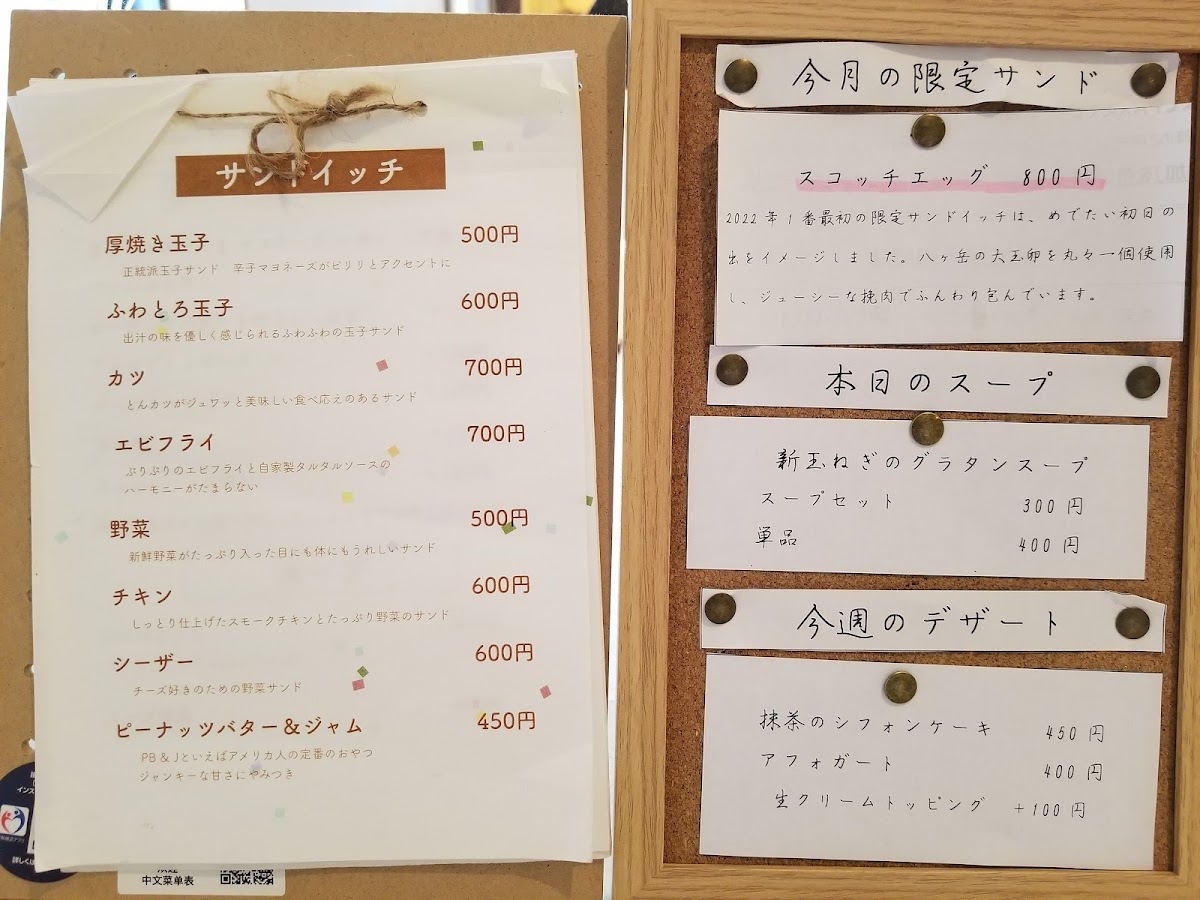 サンドイッチ
厚焼き玉子 500円
正統派玉子サンド 辛子マヨネーズがピリリとアクセントに
ふわとろ玉子 600円
出汁の味を優しく感じられるふわふわの玉子サンド
カツ 700円
とんカツがジュワッと美味しい食べ応えのあるサンド
エビフライ 700円
ぷりぷりのエビフライと自家製タルタルソースの
ハーモニーがたまらない
野菜 500円
新鮮野菜がたっぷり入った目にも体にもうれしいサンド
チキン 600円
しっとり仕上げたスモークチキンとたっぷり野菜のサンド
シーザー 600円
チーズ好きのための野菜サンド
ピーナッツバター＆ジャム 450円
PB＆Jといえばアメリカ人の定番のおやつ
ジャンキーな甘さにやみつき
中文菜单表
今月の限定サンド
スコッチエッグ 800円
2022年1番最初の限定サンドイッチは、めでたい初日の
出をイメージしました。八ヶ岳の大玉卵を丸々一個使用
し、ジューシーな挽肉でふんわり包んでいます。
本日のスープ
新玉ねぎのグラタンスープ
スープセット 300円
単品 400円
今週のデザート
抹茶のシフォンケーキ 450円
アフォガート 400円
生クリームトッピング +100円